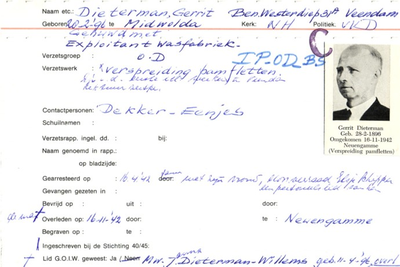 Naam etc: Dieterman, Gerrit Ben. Westerdiep 3A Veendam
Geboren 20-2-'96 te Midwolda Kerk: NH Politiek: VKD
Gehuwd met
Exploitant wasfabriek.
Verzetsgroep : O.D IP.OD BS C
Verzetswerk : Verspreiding pamfletten.
Contactpersonen: Dekker-Eenjes
Schuilnamen :
Verzetsrapp. ingel. dd. : bij:
Naam genoemd in rapp.:
op bladzijde:
Gerrit Dieterman
Geb. 28-2-1896
Omgekomen 16-11-1942
Neuengamme
(Verspreiding pamfletten)
Gearresteerd op : 16-4-'42 door: met zijn
Gevangen gezeten in :
Bevrijd op : uit door:
Overleden op : 16-11-'42 door: te Neuengamme
Begraven op : te
Ingeschreven bij de Stichting 40/45:
Lid G.O.I.W. geweest: Ja (Neen) Mw. J Dieterman-Willems geb. 11-4-'96,